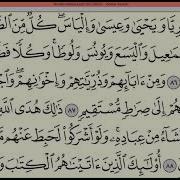 رِيَّا وَيَحْيَىٰ وَعِيسَىٰ وَإِلْيَاسَ ۖ كُلٌّ مِّنَ ٱلصَّ
مَـٰعِيلَ وَٱلْيَسَعَ وَيُونُسَ وَلُوطًا ۚ وَكُلًّا فَضَّ
٨٦ وَمِنْ ءَابَآئِهِمْ وَذُرِّيَّـٰتِهِمْ وَإِخْوَٰنِهِمْ ۖ وَ
هُمْ إِلَىٰ صِرَٰطٍ مُّسْتَقِيمٍ ٨٧ ذَٰلِكَ هُدَى ٱللَّهِ
شَآءُ مِنْ عِبَادِهِۦ ۚ وَلَوْ أَشْرَكُوا۟ لَحَبِطَ عَنْهُم
٨٨ أُو۟لَـٰٓئِكَ ٱلَّذِينَ ءَاتَيْنَـٰهُمُ ٱلْكِتَـٰبَ وَ